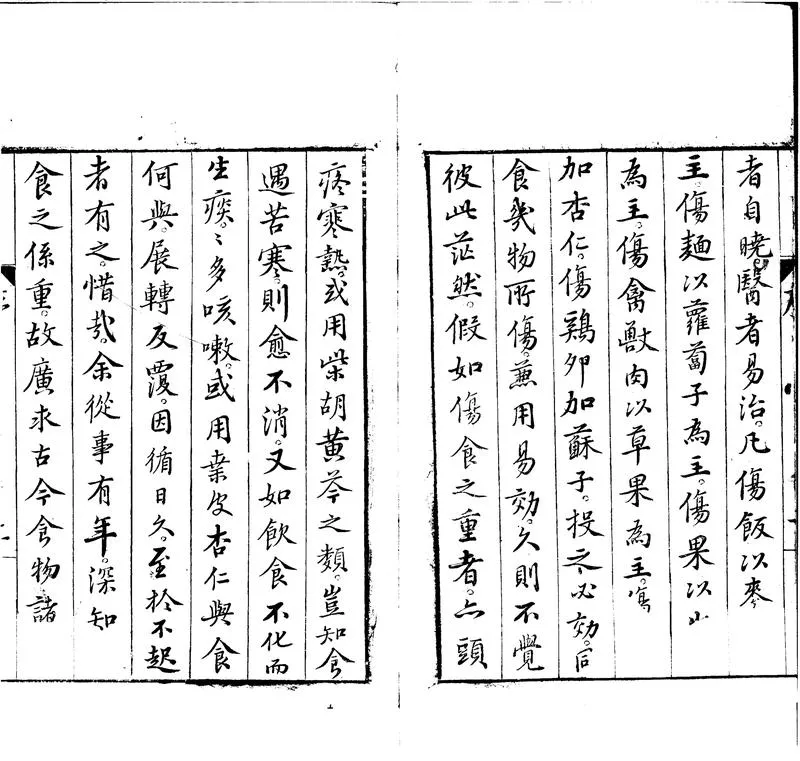 者自曉醫者易治。凡傷飯以麥
主。傷麵以蘿蔔子為主。傷果以山
為主。傷禽獸肉以草果為主。傷
加杏仁。傷鷄卵加蘇子。投之必効。同
食幾物所傷。兼用易効。久則不覺
彼此茫然。假如傷食之重者。亦頭
疼寒熱。或用柴胡黃芩之類。豈知食
遇苦寒。則愈不消。又如飲食不化而
生痰。〻多咳嗽。或用桑皮杏仁與食
何與。展轉反覆。因循日久。至於不起
者有之。惜哉。余從事有年。深知
食之係重。故廣求古今食物諸